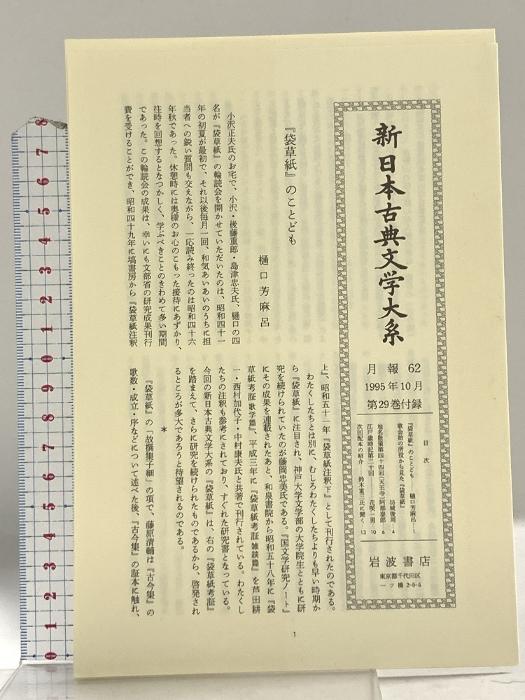 新日本古典文学大系
月報 62
1995年10月
第29巻付録
目次
『袋草紙』のことども……樋口芳麻呂…1
岩波書店
東京都千代田区
一ツ橋 2-5-5
『袋草紙』のことども
樋口芳麻呂
小沢正夫氏のお宅で、小沢・後藤重郎・島津忠夫氏、樋口の四
名が『袋草紙』の輪読会を開かせていただいたのは、昭和四十一
年の初夏が最初で、それ以後毎月一回、和気あいあいのうちに担
当者への鋭い質問も交えながら、一応読み終ったのは昭和四十六
年秋であった。休憩時には奥様のお心のこもった接待にあずかり、
注時を回想するとなつかしく、学ぶべきことのきわめて多い期間
であった。この輪読会の成果は、幸いにも文部省の研究成果刊行
費を受けることができ、昭和四十九年に塙書房から『袋草紙注釈
上』、昭和五十一年『袋草紙注釈下』として刊行されたのである。
わたくしたちとは別に、むしろわたくしたちよりも早い時期か
ら『袋草紙』に注目され、神戸大学文学部の大学院生とともに研
究を続けられていたのが藤岡忠美氏である。『国文学研究ノート』
にその成果を連載されたあと、和泉書院から昭和五十八年に『袋
草紙考証 歌学篇』、平成三年に『袋草紙考証 雑談篇』を芦田耕
一・西村加代子・中村康夫氏と共著で刊行されている。わたくし
たちの注釈も参考にされており、すぐれた研究書となっている。
今回の新日本古典文学大系の『袋草紙』は、右の『袋草紙考証』
を踏まえて、さらに研究を続けられたものであるから、啓発され
るところが多大であろうと待望されるのである。
*
『袋草紙』の「故撰集子細」の項で、藤原清輔は『古今集』の
歌数・成立・序などについて述べた後、『古今集』の証本に触れ、
1
0 1 2 3 4 5 6 7 8 9 0 1 2 3 4 5 6 7 8